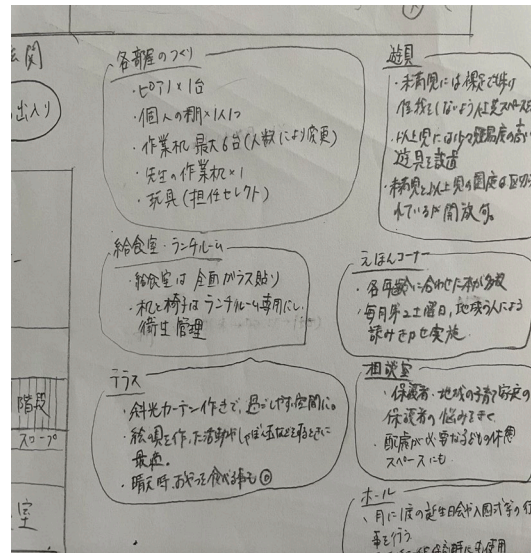 玄関
出入り
各部屋のつくり
・ピアノ×1台
・個人の棚×1人1つ
・作業机 最大6台(人数により変更)
・先生の作業机×1
・玩具(担任セレクト)
給食室・ランチルーム
・給食室は全面ガラス貼り
・机と椅子はランチルーム専用にし、
衛生管理
テラス
・斜光カーテン付きで、過ごしやすい空間に。
・絵の具を作った活動やしゃぼん玉などをするときに
最適。
・晴天時、おやつを食べる事も◎
階段
スロープ
室
遊具
・未満児には裸足で歩け
怪我をしないよう
・以上児には少々難易度の高い
遊具を設置
・未満児と以上児の園庭は区切ら
れているが開放的。
えほんコーナー
・各年齢に合わせた本が多数
・毎月第2土曜日、地域の人による
読みきかせ実施。
相談室
・保護者・地域の子育て家庭の
保護者の悩みをきく。
・配慮が必要な子どもの休憩
スペースにも
ホール
・月に1度の誕生日会や入園式等の行
事を行う